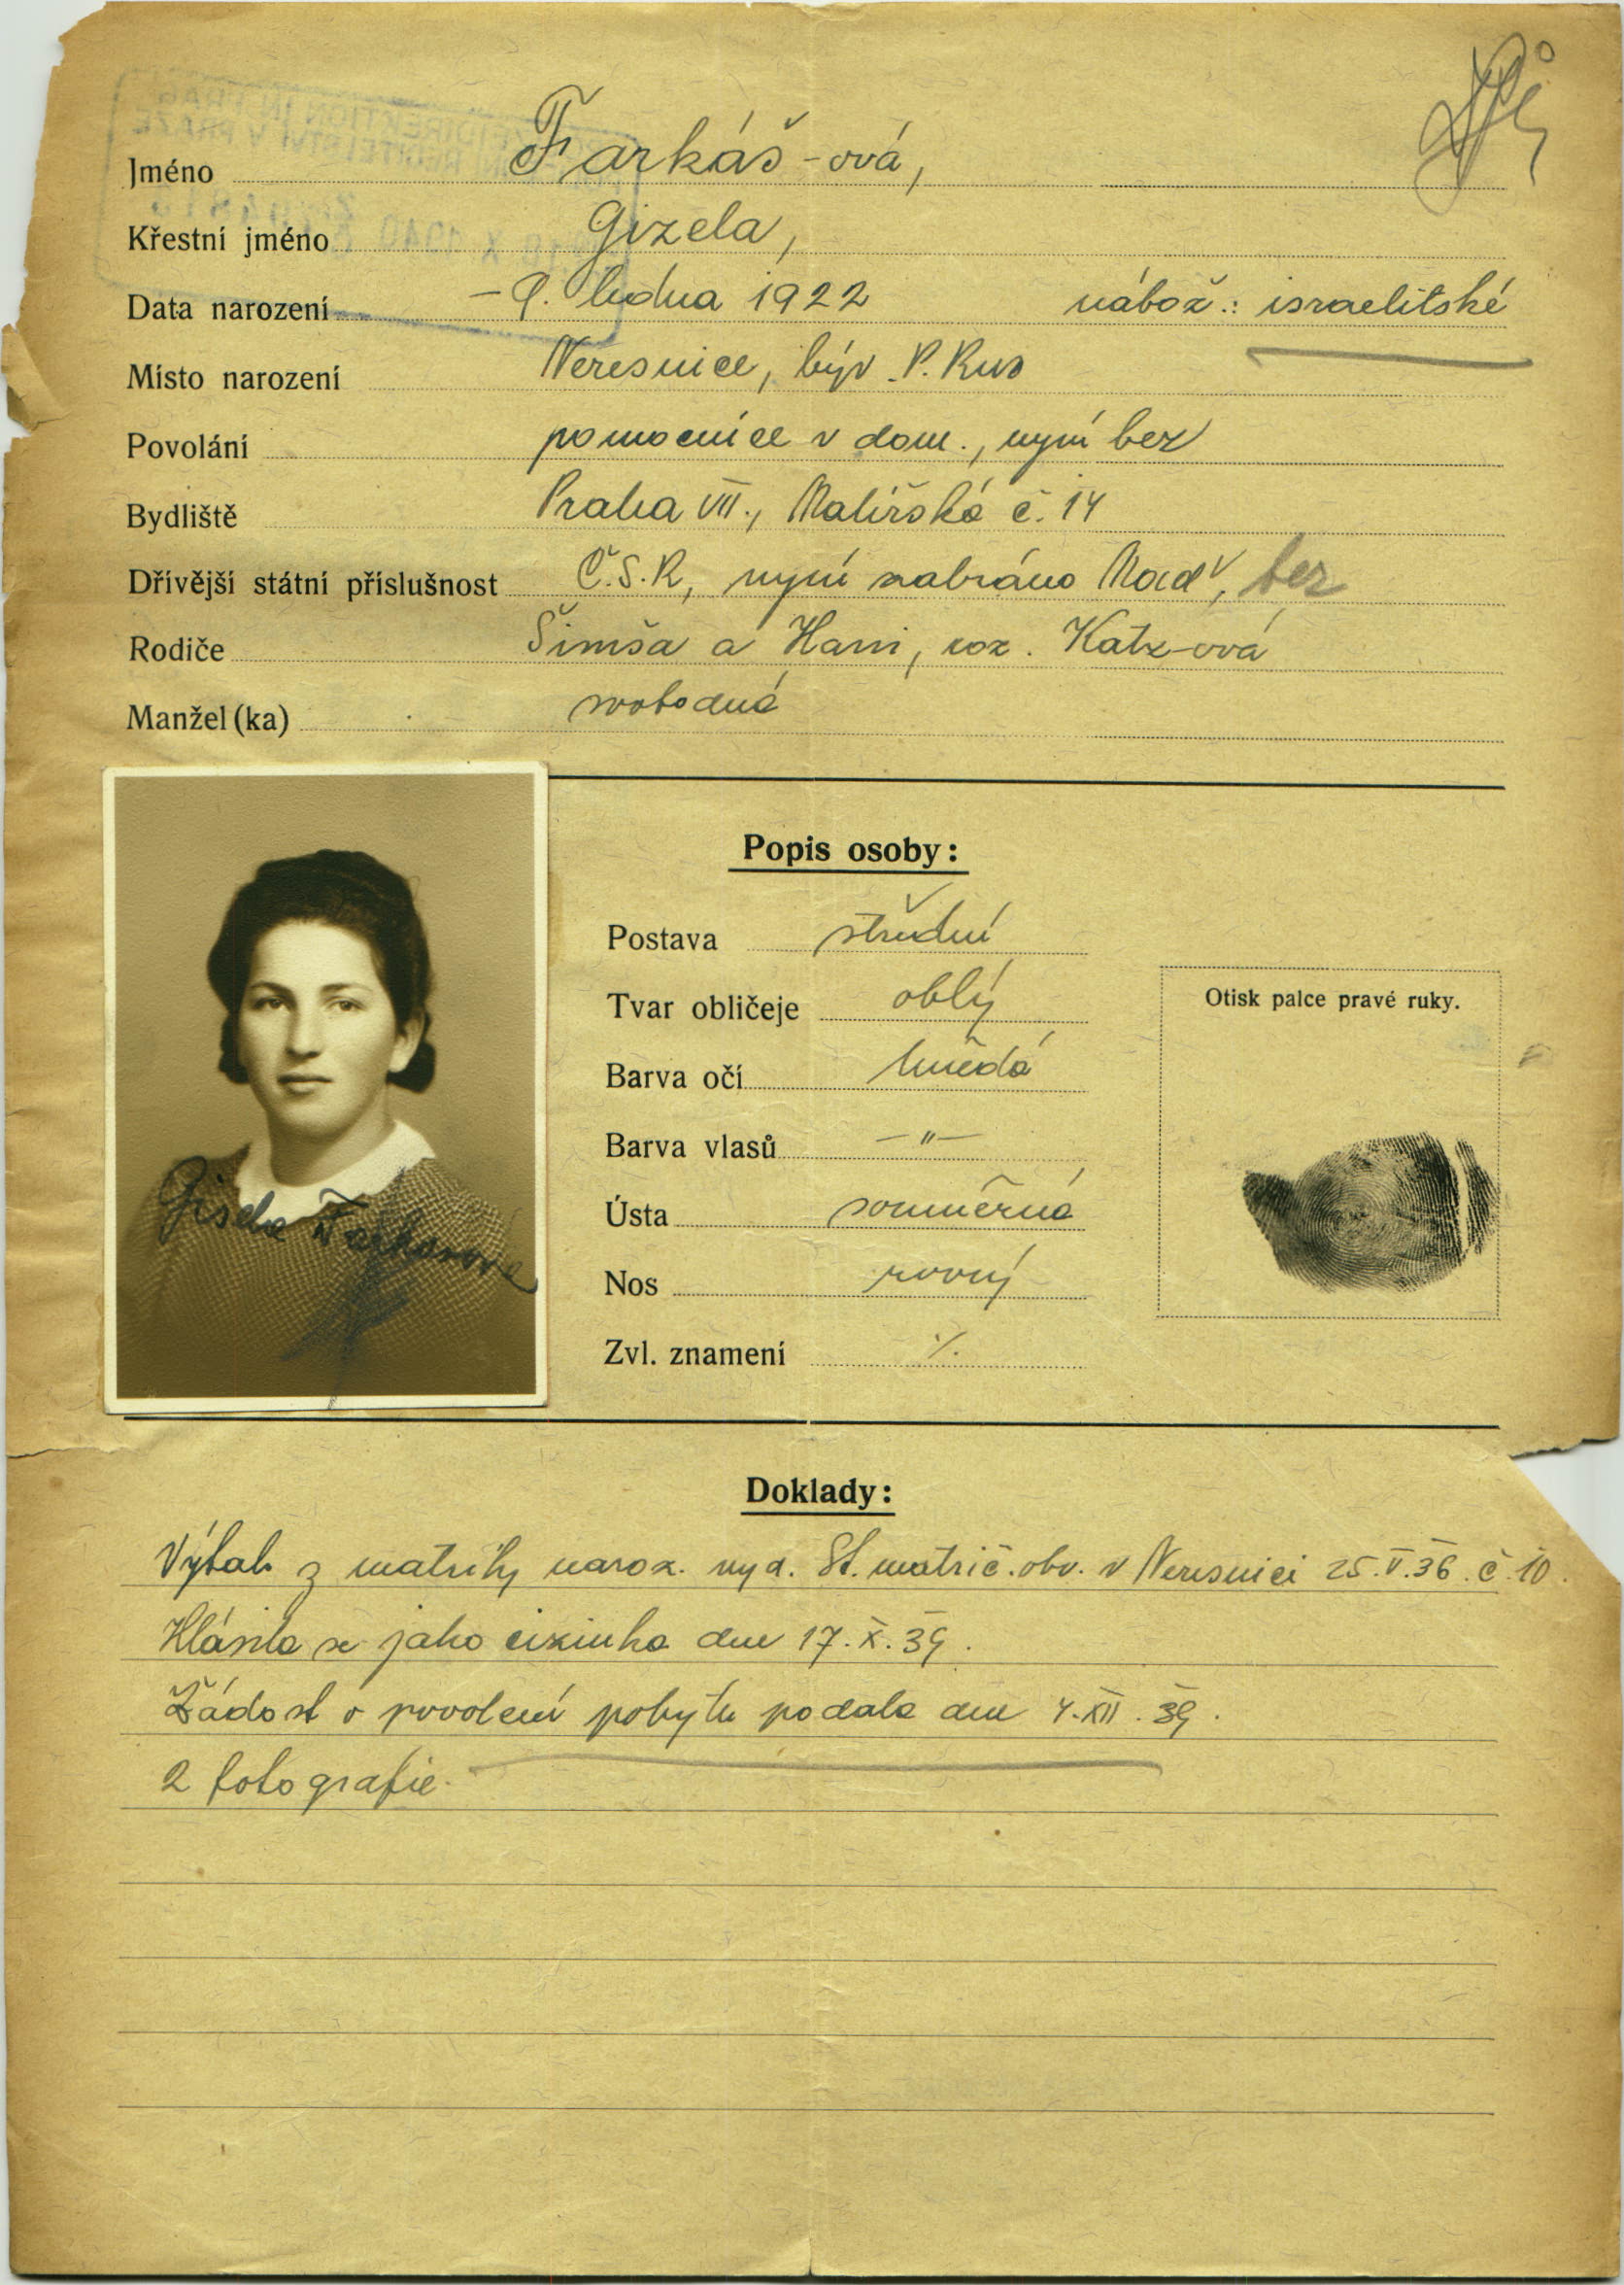 Jméno Farkáš-ová,
Křestní jméno Gizela,
Data narození -9. ledna 1922 nábož.: israelitské
Místo narození Neresnice, býv. P. Rus
Povolání pomocnice v dom., nyní bez
Bydliště Praha VII., Malířská č. 14
Dřívější státní příslušnost Č.S.R, nyní zabráno Maď, bez
Rodiče Šimša a Hani, roz. Katz-ová
Manžel(ka) svobodná
Popis osoby:
Postava střední
Tvar obličeje oblý
Barva očí hnědá
Barva vlasů —"—
Ústa souměrná
Nos rovný
Zvl. znamení ·/.
Otisk palce pravé ruky.
Gisela Farkasova
Doklady:
Výtah z matriky naroz. vyd. St. matrič. obv. v Neresnici 25.V.36. č. 10.
Hlásila se jako cizinka dne 17.X.39.
Žádost o povolení pobytu podala dne 4.XII.39.
2 fotografie.